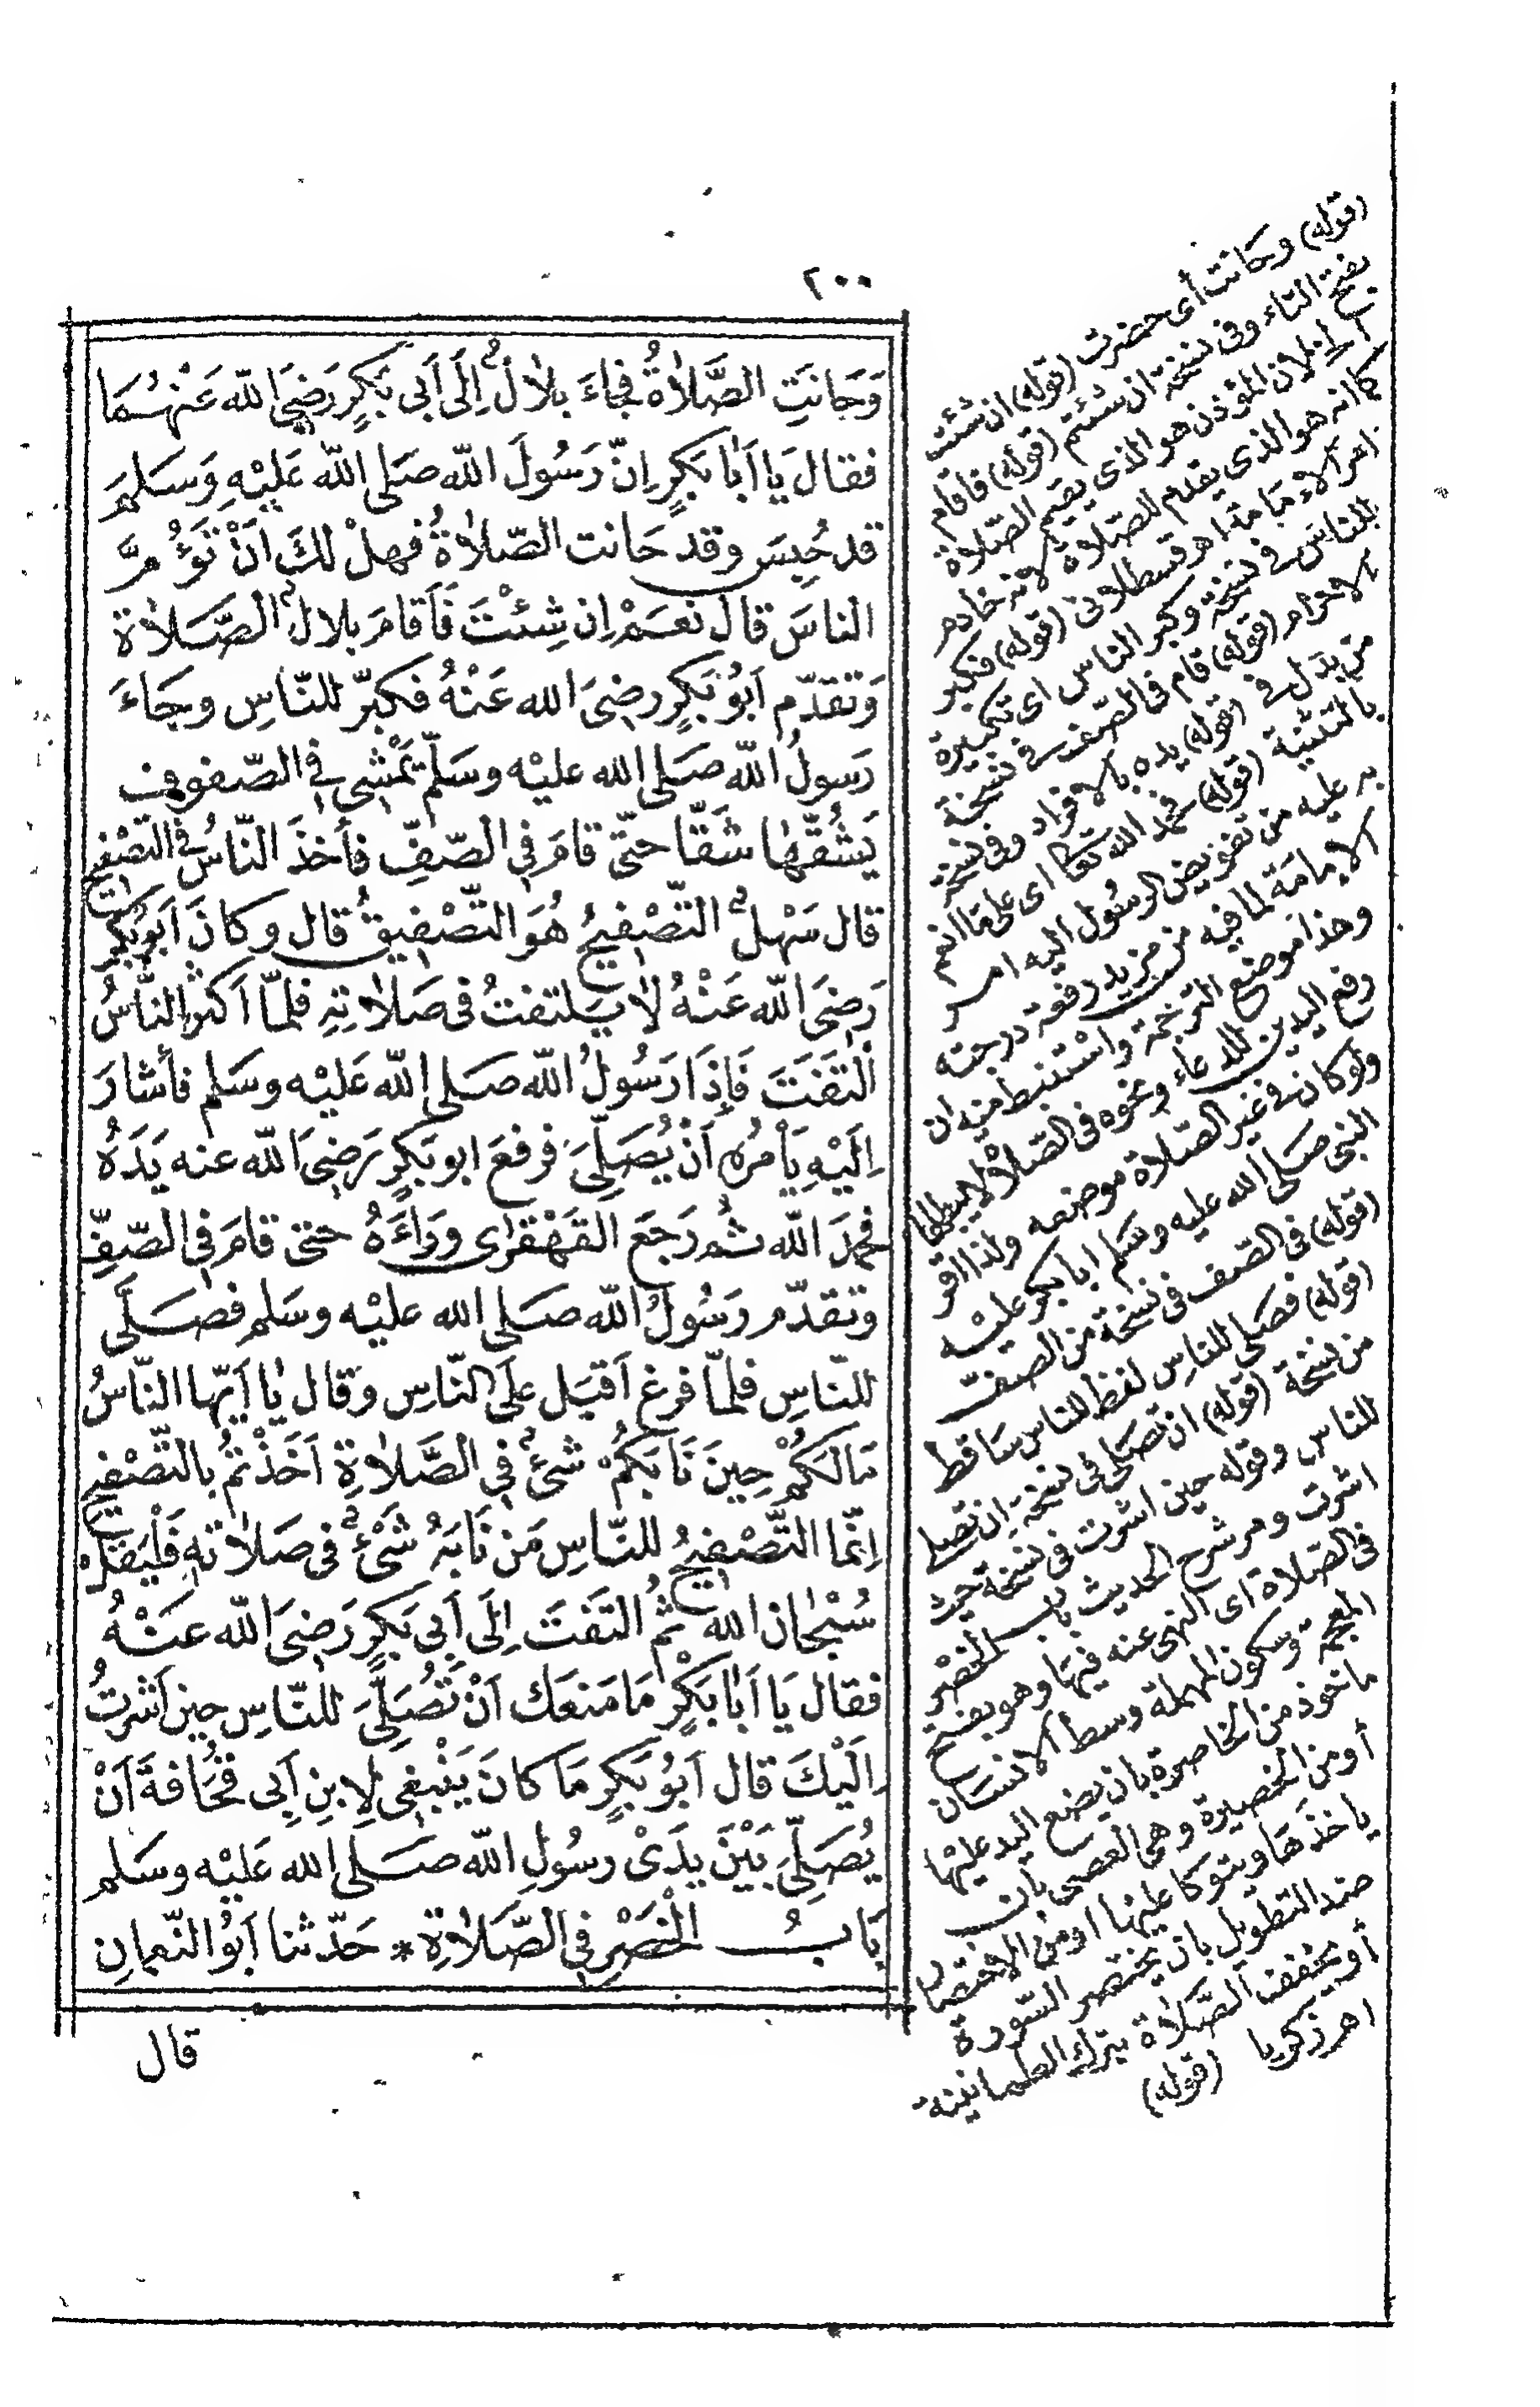 ٢٠٠
وَحَانَتِ الصَّلَاةُ فجاءَ بلالٌ اِلَى أَبى بَكرٍ رَضِىَ الله عَنْهُمَا
فقال يَا اَبَا بَكرٍ اِنّ رَسُولَ الله صَلى الله عَلَيْهِ وَسَلمَ
قد حُبِسَ وقد حَانت الصّلاةُ فهلْ لكَ اَنْ تَؤُمَّ
الناسَ قال نعَمْ اِن شِئْتَ فَأَقامَ بلالٌ الصَّلاة
وَتقدّم اَبوُ بَكرٍ رضِىَ الله عَنْهُ فكبّر للنّاسِ وجَاءَ
رَسولُ الله صَلى الله عليْه وسَلّم يَمْشِى فى الصّفوف
يَشُقّهَا شَقّا حتّى قامَ فِى الصّفِّ فأخذَ النّاسُ فى التّصْفِيح
قال سَهْلٌ التّصْفِيحُ هُوَ التّصْفِيقُ قال وكانَ اَبوُ بَكرٍ
رَضِىَ الله عَنْهُ لا يَلتفتُ فى صَلاتهِ فلمّا اَكثرَ النّاسُ
اَلْتفَتَ فَإِذَا رَسُولُ الله صَلى الله عَليْه وسَلم فأشارَ
اِلَيْهِ يَأمُرُه اَنْ يُصَلّىَ فرفعَ ابو بَكرٍ رَضِىَ الله عنه يَدَهُ
فحمِدَ الله ثم رَجَعَ القَهْقرَى وَرَاءَهُ حتى قامَ فِى الصّفِّ
وتقدّم رَسُولُ الله صَلى الله عليْه وسَلم فصَلَّى
للنّاسِ فلمّا فرغ اَقبَل علَى النّاسِ وقال يا اَيّها النّاسُ
مَا لَكمُ حِينَ نَابَكمُ شئٌ فِى الصَّلاةِ اَخَذْتمُ بالتّصْفِيح
اِنّما التَّصْفِيحُ للنّاسِ مَن نَابَهُ شَئٌ فى صَلاتهِ فَلْيَقلْ
سُبْحان الله ثمُ التَفَتَ اِلَى اَبِى بَكرٍ رَضِىَ الله عَنْهُ
فقال يَا اَبَا بَكرٍ مَا مَنعَك اَنْ تُصَلّىَ للنّاسِ حِين اَشَرتُ
اِلَيْكَ قال اَبوُ بَكرٍ مَا كانَ يَنْبَغِى لاِبنِ اَبِى قُحَافةَ اَنْ
يُصَلِّىَ بَيْنَ يَدَىْ رسُولِ الله صَلى الله عَليْه وسَلم
بَابُ الْخَصْرِ فِى الصَّلاةِ * حَدّثنا اَبوُ النّعمانِ
قال
(قوله) وحانت أى حضرت (قوله) ان شئت
بفتح التاء وفى نسخة ان شئتم (قوله) فاقام
بلال لان المؤذن هو الذى يقيم الصّلاة
كما انه هو الذى يقدم للصّلاة لانه خادم
امر الامامة اهر قسطلانى (قوله) فكبر
للناس فى نسخة وكبر الناس اى تكبيرة
الاحرام (قوله) قام فى الصّف فى نسخة
من بدل فى (قوله) يده بالافراد وفى نسخة
بالتثنية (قوله) فحمد الله تعالى اى على ما انعم
به عليه من تفويض الرسُول اليه امر
الامامَة لما فيه من مزيد رفعة درجته
وهذا موضع الترجمة واستنبط منه ان
رفع اليدين للدعاء ونحوه فى الصّلاة لا يبطلها
ولو كان فى غير الصّلاة موضعه ولذا اقر
النبى صَلى الله عليه وسَلم ابا بكر عليْه
(قوله) فى الصّف فى نسخة من الصف
(قوله) فصَلى للناسِ لفظ للناس ساقط
من نسخة (قوله) ان تصَلى فى نسخة ان تصلى
للناس وقوله حين اشرت فى نسخة حيث
اشرت ومر شرح الحديث باب الخصْر
فى الصّلاة اى النهى عنه فيها وهو بفتح
المعجمة وسكون المهملة وسط الانسان
ماخوذ من الخاصرة بان يضع اليد عليْها
أو من المخصرة وهى العصى بان
ياخذها ويتوكا عليها او من الاختصار
ضد التطويل بان يختصر السّورة
أو يخفف الصّلاة بترك الطمانينة
اهر زكريا (قوله)